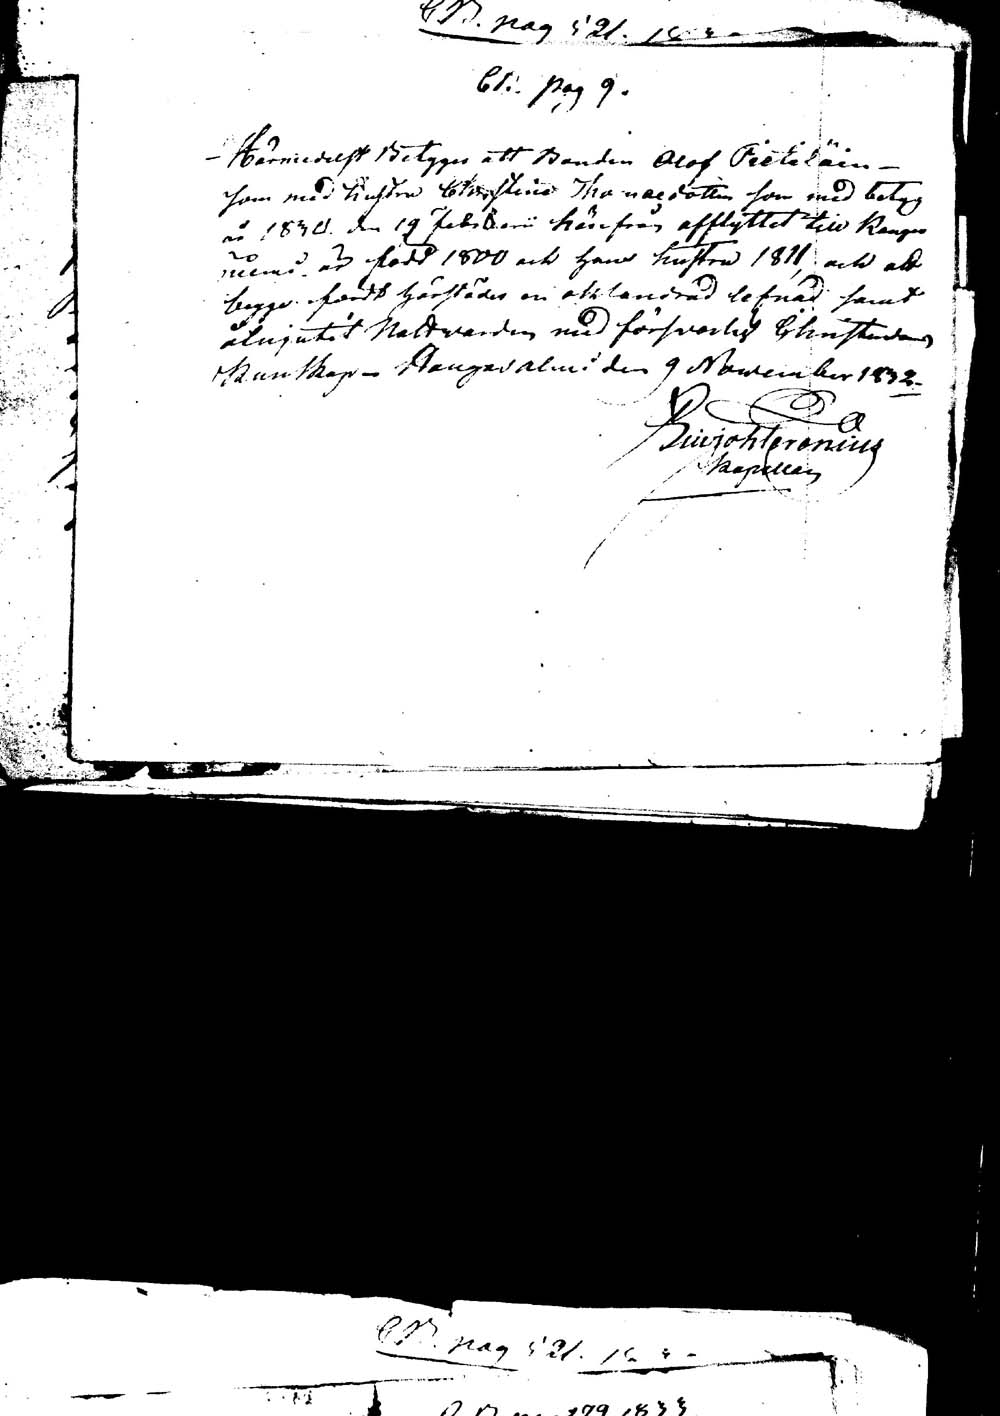 pag 521.
Ct: pag 9.
Härmedelst Betyges att Bonden Olof Pietiläin
som med hustru Christina Thomaedotter som med betyg
år 1830. den 19 Februarii härifrån afflyttet till Kangas
niemi är född 1800 och hans hustru 1811, och att
begge fördt härstädes en oklandrad lefnad samt
åtnjutit Nattwarden med förswarlig Christendoms
Kunskap Haugasalmi den 9 November 1832.
Kapellan
pag 521.
179 1833